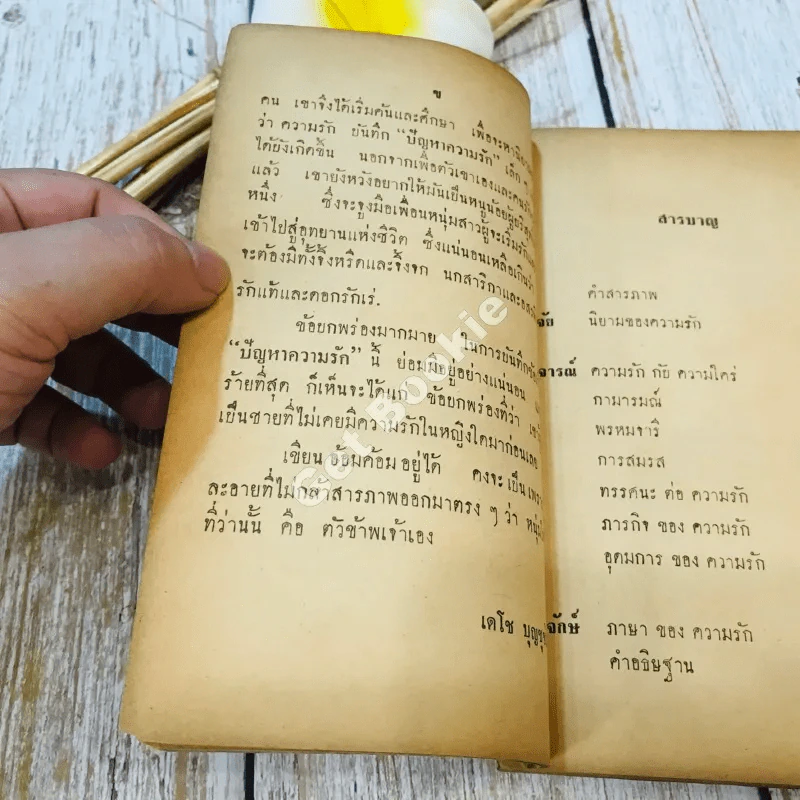 ข
คน เขาจึงได้เริ่มค้นและศึกษา เพื่อจะหานิยาม
ว่า ความรัก บันทึก “ปัญหาความรัก” เล็ก ๆ
ได้ยังเกิดขึ้น นอกจากเพื่อตัวเขาเองและคนอื่น
แล้ว เขายังหวังอยากให้มันเป็นหนูน้อยผู้บริสุทธิ์
หนึ่ง ซึ่งจะจูงมือเพื่อนหนุ่มสาวผู้จะเริ่มรัก
เข้าไปสู่อุทยานแห่งชีวิต ซึ่งแน่นอนเหลือเกินว่า
จะต้องมีทั้งจิ้งหรีดและจิ้งจก นกสาริกาและ
รักแท้และดอกรักเร่.
ข้อยกพร่องมากมาย ในการบันทึก
“ปัญหาความรัก” นี้ ย่อมมีอยู่อย่างแน่นอน
ร้ายที่สุด ก็เห็นจะได้แก่ ข้อยกพร่องที่ว่า
เป็นชายที่ไม่เคยมีความรักในหญิงใดมาก่อนเลย
เขียน อ้อมค้อม อยู่ได้ คงจะ เป็น
ละอายที่ไม่กล้าสารภาพออกมาตรง ๆ ว่า หนุ่ม
ที่ว่านั้น คือ ตัวข้าพเจ้าเอง
เดโช
สารบาญ
คำสารภาพ
นิยามของความรัก
ความรัก กับ ความใคร่
กามารมณ์
พรหมจารี
การสมรส
ทรรศนะ ต่อ ความรัก
ภารกิจ ของ ความรัก
อุดมการ ของ ความรัก
ภาษา ของ ความรัก
คำอธิษฐาน
Get Bookie